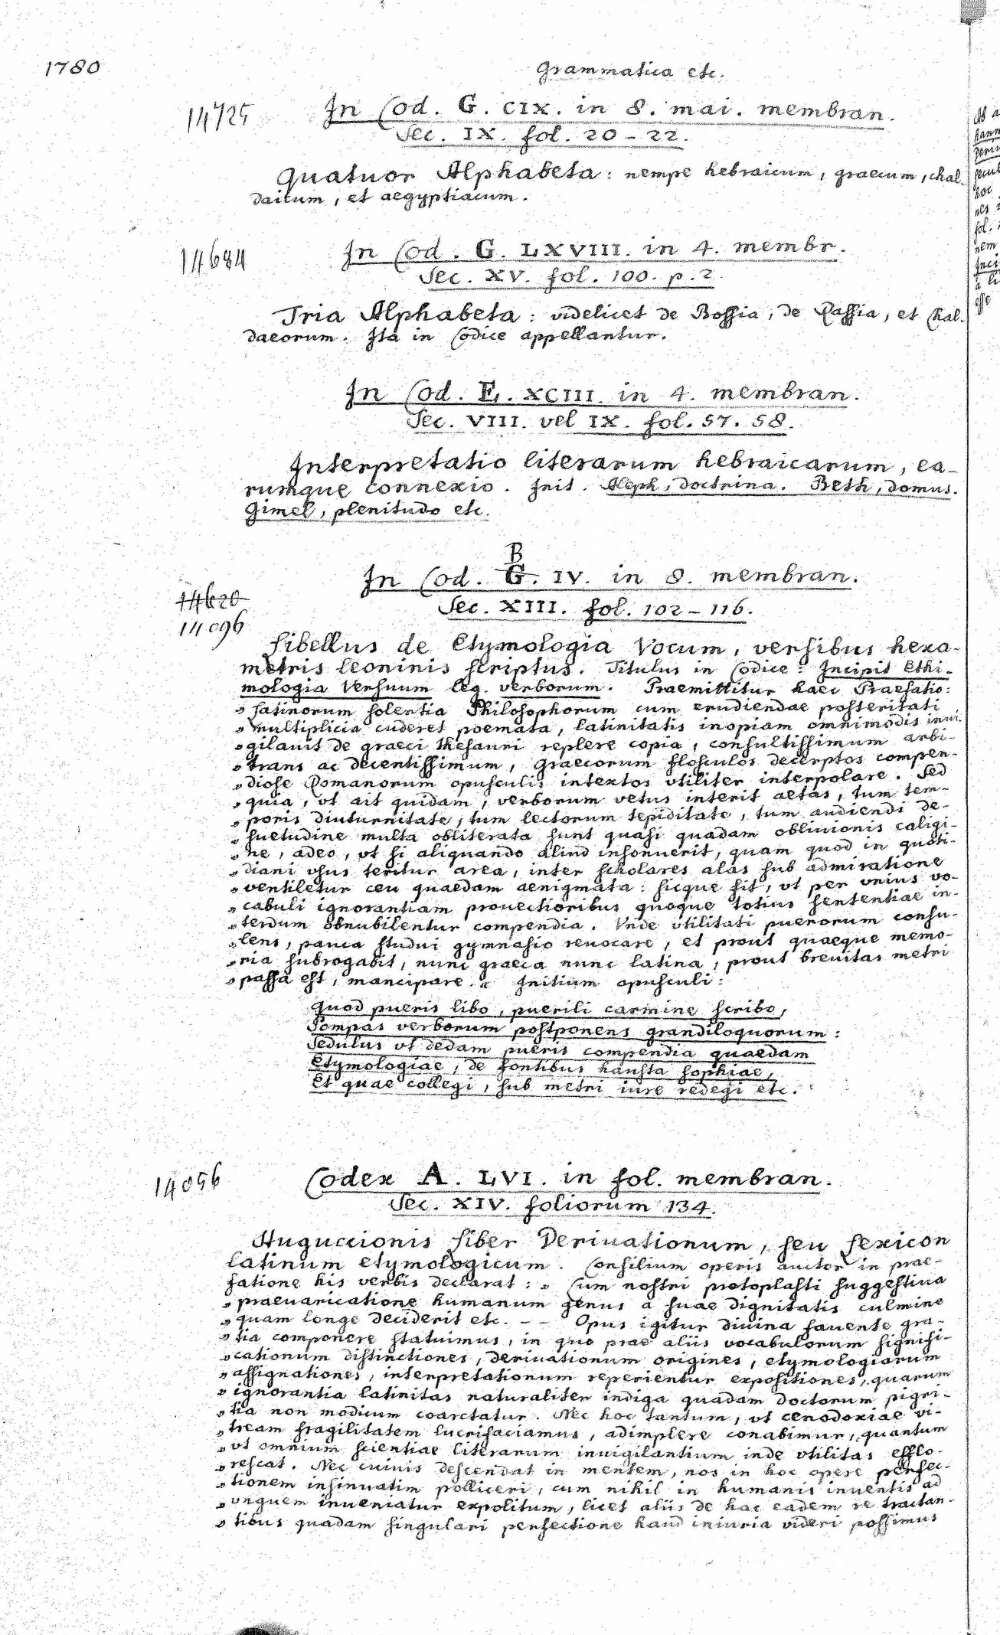 1780
Grammatica etc.
14725
In Cod. G. CIX. in 8. mai. membran.
Sec. IX. fol. 20-22.
Quatuor Alphabeta: nempe hebraicum, graecum, chal-
daicum, et aegyptiacum.
14684
In Cod. G. LXVIII. in 4. membr.
Sec. XV. fol. 100. p. 2.
Tria Alphabeta: videlicet de Bossia, de Rassia, et Chal-
daeorum. Ita in Codice appellantur.
In Cod. E. XCIII. in 4. membran.
Sec. VIII. vel IX. fol. 57. 58.
Interpretatio literarum hebraicarum, ea-
rumque connexio. Init. Aleph, doctrina. Beth, domus.
Gimel, plenitudo etc.
B
In Cod. G. IV. in 8. membran.
14620
14096
Sec. XIII. fol. 102-116.
Libellus de Etymologia Vocum, versibus hexa-
metris leoninis scriptus. Titulus in Codice: Incipit Ethi-
mologia Versuum leg. verborum. Praemittitur haec Praefatio:
„Latinorum solertia Philosophorum cum erudiendae posteritati
„multiplicia cuderet poemata, latinitatis inopiam omnimodis invi-
„gilavit de graeci thesauri replere copia, consultissimum arbi-
„trans ac decentissimum, Graecorum flosculos decerptos compen-
„diose Romanorum opusculis intextos vtiliter interpolare. Sed
„quia, vt ait quidam, verborum vetus interit aetas, tum tem-
„poris diuturnitate, tum lectorum tepiditate, tum audiendi de-
„suetudine multa obliterata sunt quasi quadam oblivionis caligi-
„ne, adeo, vt si aliquando aliud insonuerit, quam quod in quoti-
„diani vsus teritur area, inter scholares alas sub admiratione
„ventiletur ceu quaedam aenigmata: sicque fit, vt per vnius vo-
„cabuli ignorantiam prouectioribus quoque totius sententiae in-
„terdum obnubilentur compendia. Vnde vtilitati puerorum consu-
„lens, pauca studui gymnasio reuocare, et prout quaeque memo-
„ria subrogabit, nunc graeca nunc latina, prout breuitas metri
„passa est, mancipare. Initium opusculi:
Quod pueris libo, puerili carmine scribo,
Pompas verborum postponens grandiloquorum:
Sedulus vt dedam pueris compendia quaedam
Etymologiae, de fontibus hausta sophiae,
Et quae collegi, sub metri iure redegi etc.
14056
Codex A. LVI. in fol. membran.
Sec. XIV. foliorum 134.
Huguccionis Liber Deriuationum, seu Lexicon
latinum etymologicum. Consilium operis auctor in prae-
fatione his verbis declarat: „Cum nostri protoplasti suggestiua
„praeuaricatione humanum genus a suae dignitatis culmine
„quam longe deciderit etc. -- Opus igitur diuina fauente gra-
„tia componere statuimus, in quo prae aliis vocabulorum signifi-
„cationum distinctiones, deriuationum origines, etymologiarum
„assignationes, interpretationum reperientur expositiones, quarum
„ignorantia latinitas naturaliter indiga quadam doctorum pigri-
„tia non modicum coarctatur. Nec hoc tantum, vt cenodoxiae vi-
„tream fragilitatem lucrifaciamus, adimplere conabimur, quantum
„vt omnium scientiae literarum inuigilantium inde vtilitas efflo-
„rescat. Nec cuiuis descendat in mentem, nos in hoc opere perfec-
„tionem insinuatim polliceri, cum nihil in humanis inuentis ad
„vnguem inueniatur expolitum, licet aliis de hac eadem re tractan-
„tibus quadam singulari perfectione haud iniuria videri possimus